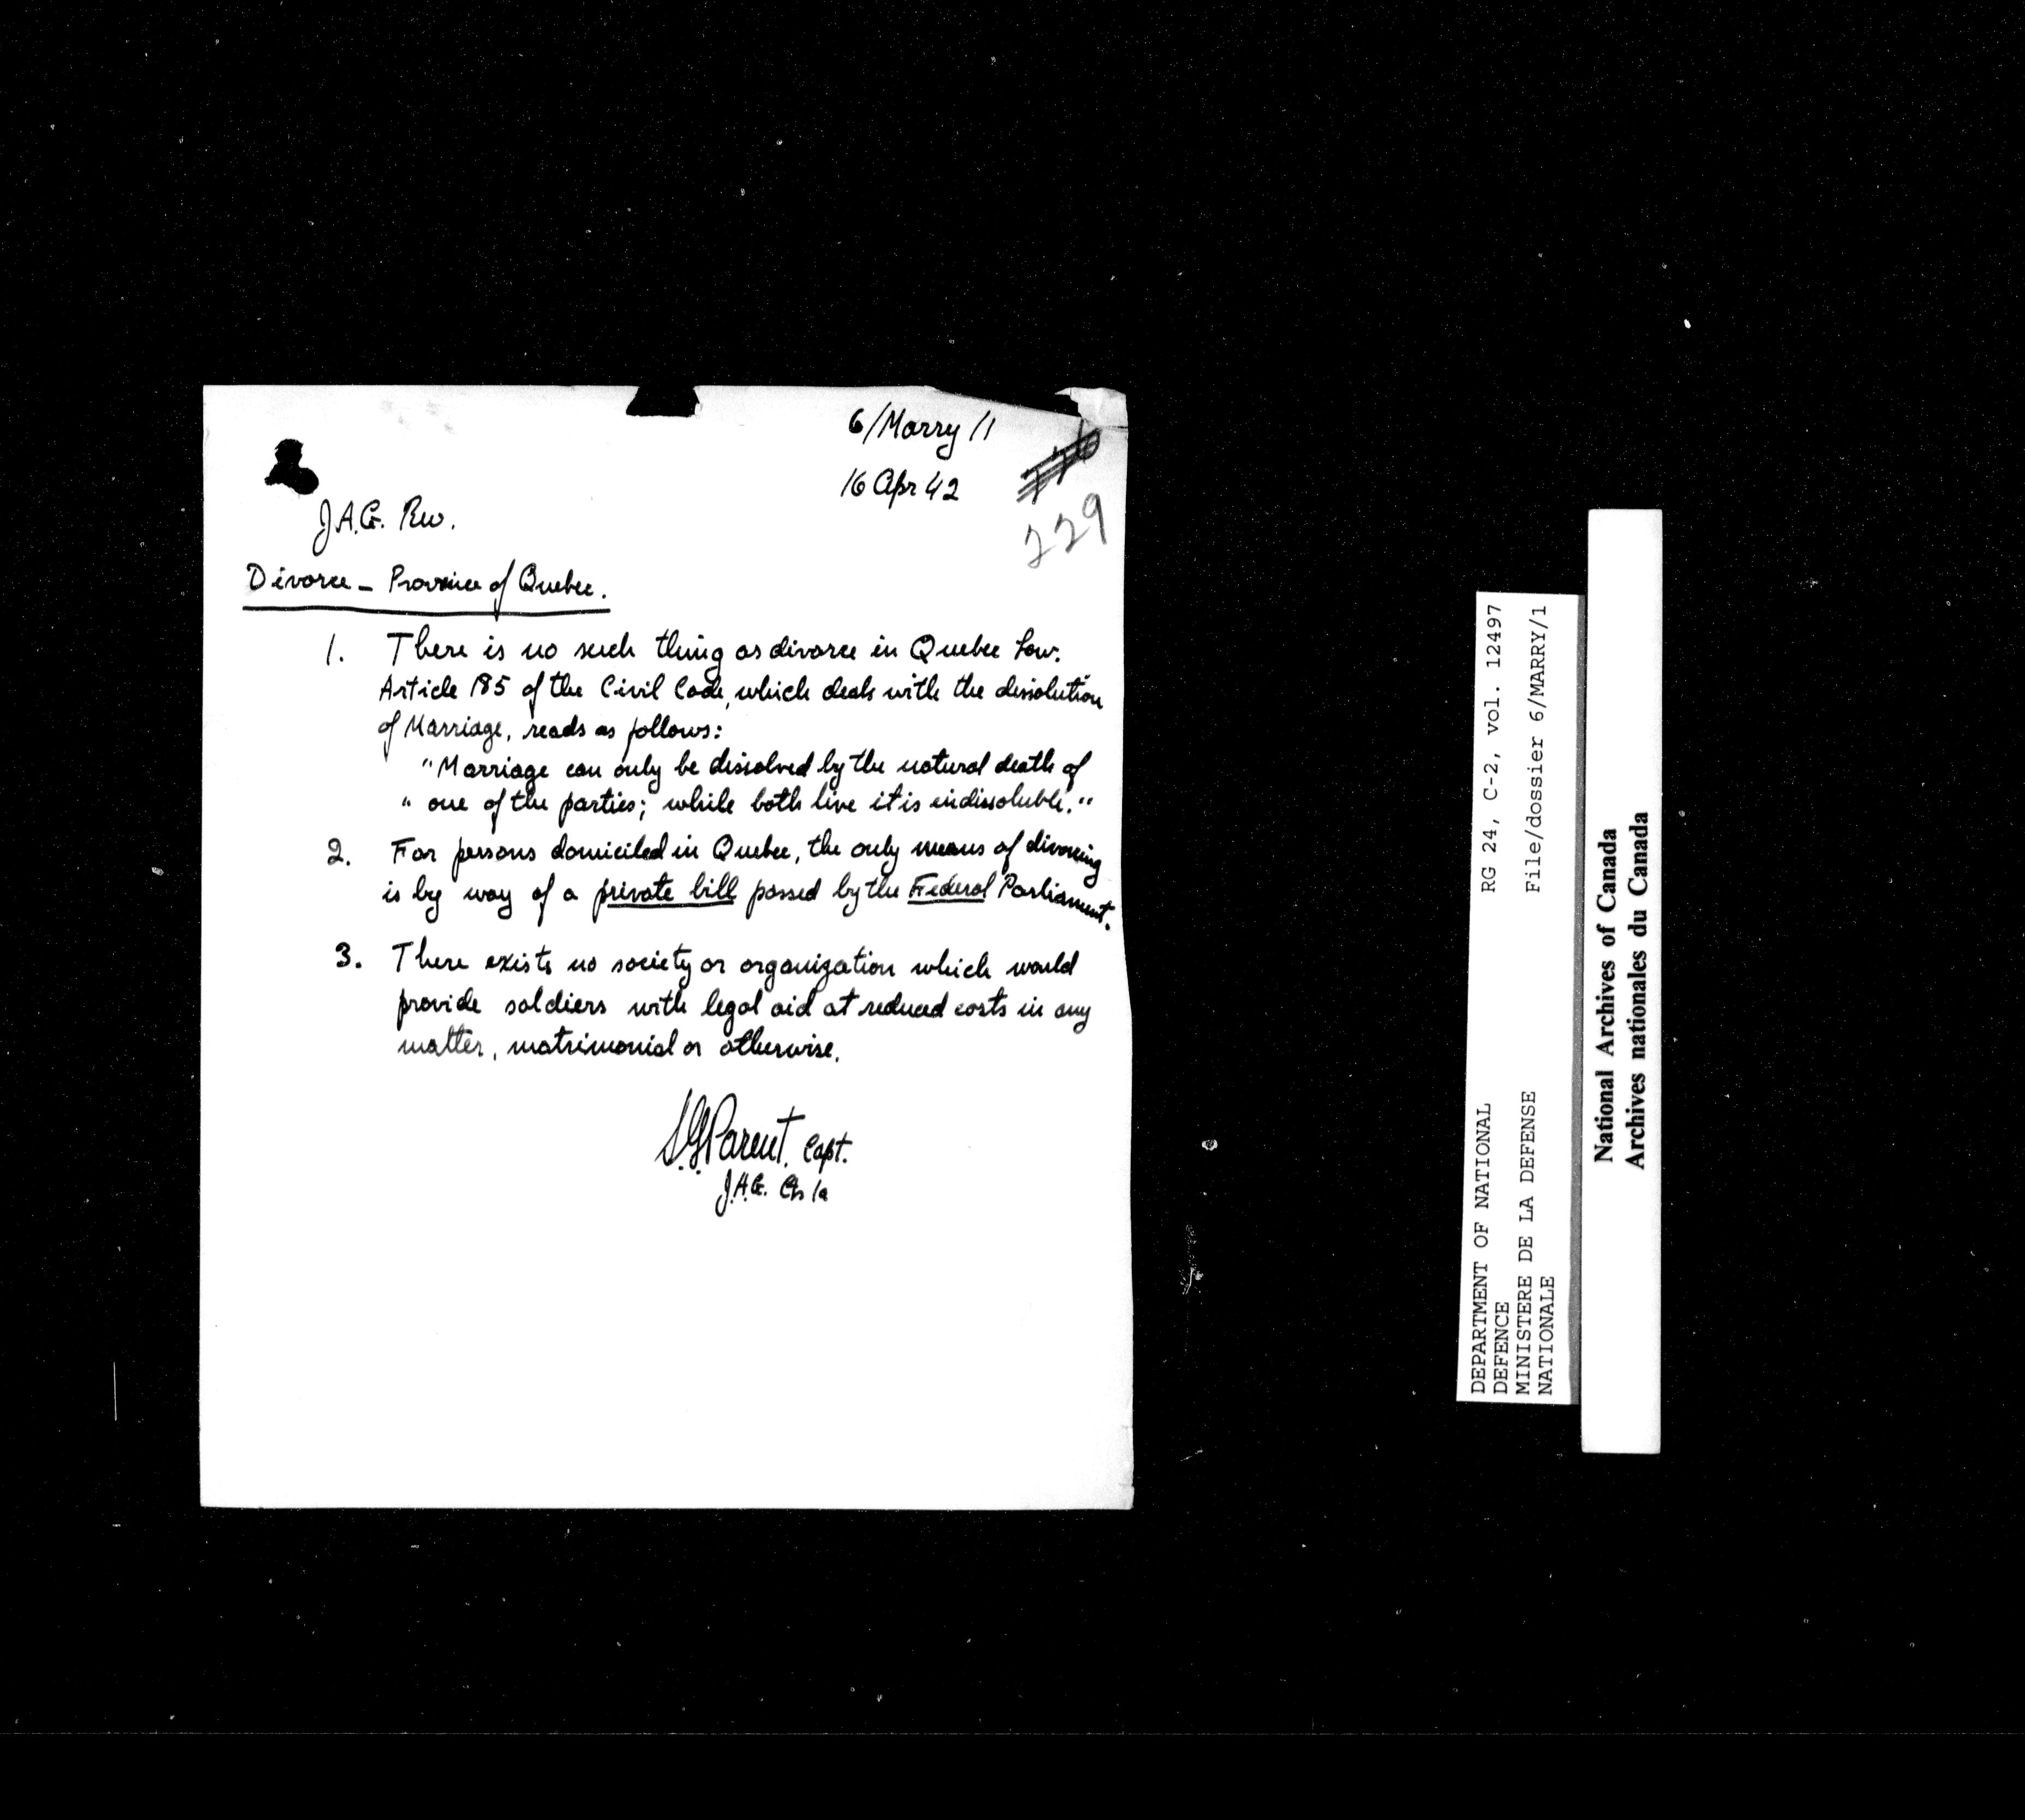 6/Marry/1
16 Apr 42
229
J.A.G. Rev.
Divorce - Province of Quebec.
1. There is no such thing as divorce in Quebec Law.
Article 185 of the Civil Code, which deals with the dissolution
of Marriage, reads as follows:
"Marriage can only be dissolved by the natural death of
" one of the parties; while both live it is indissoluble."
2. For persons domiciled in Quebec, the only means of divorcing
is by way of a private bill passed by the Federal Parliament.
3. There exists no society or organization which would
provide soldiers with legal aid at reduced costs in any
matter, matrimonial or otherwise.
Parent. Capt.
J.A.G.
DEPARTMENT OF NATIONAL
DEFENCE
MINISTERE DE LA DEFENSE
NATIONALE
RG 24, C-2, vol. 12497
File/dossier 6/MARRY/1
National Archives of Canada
Archives nationales du Canada